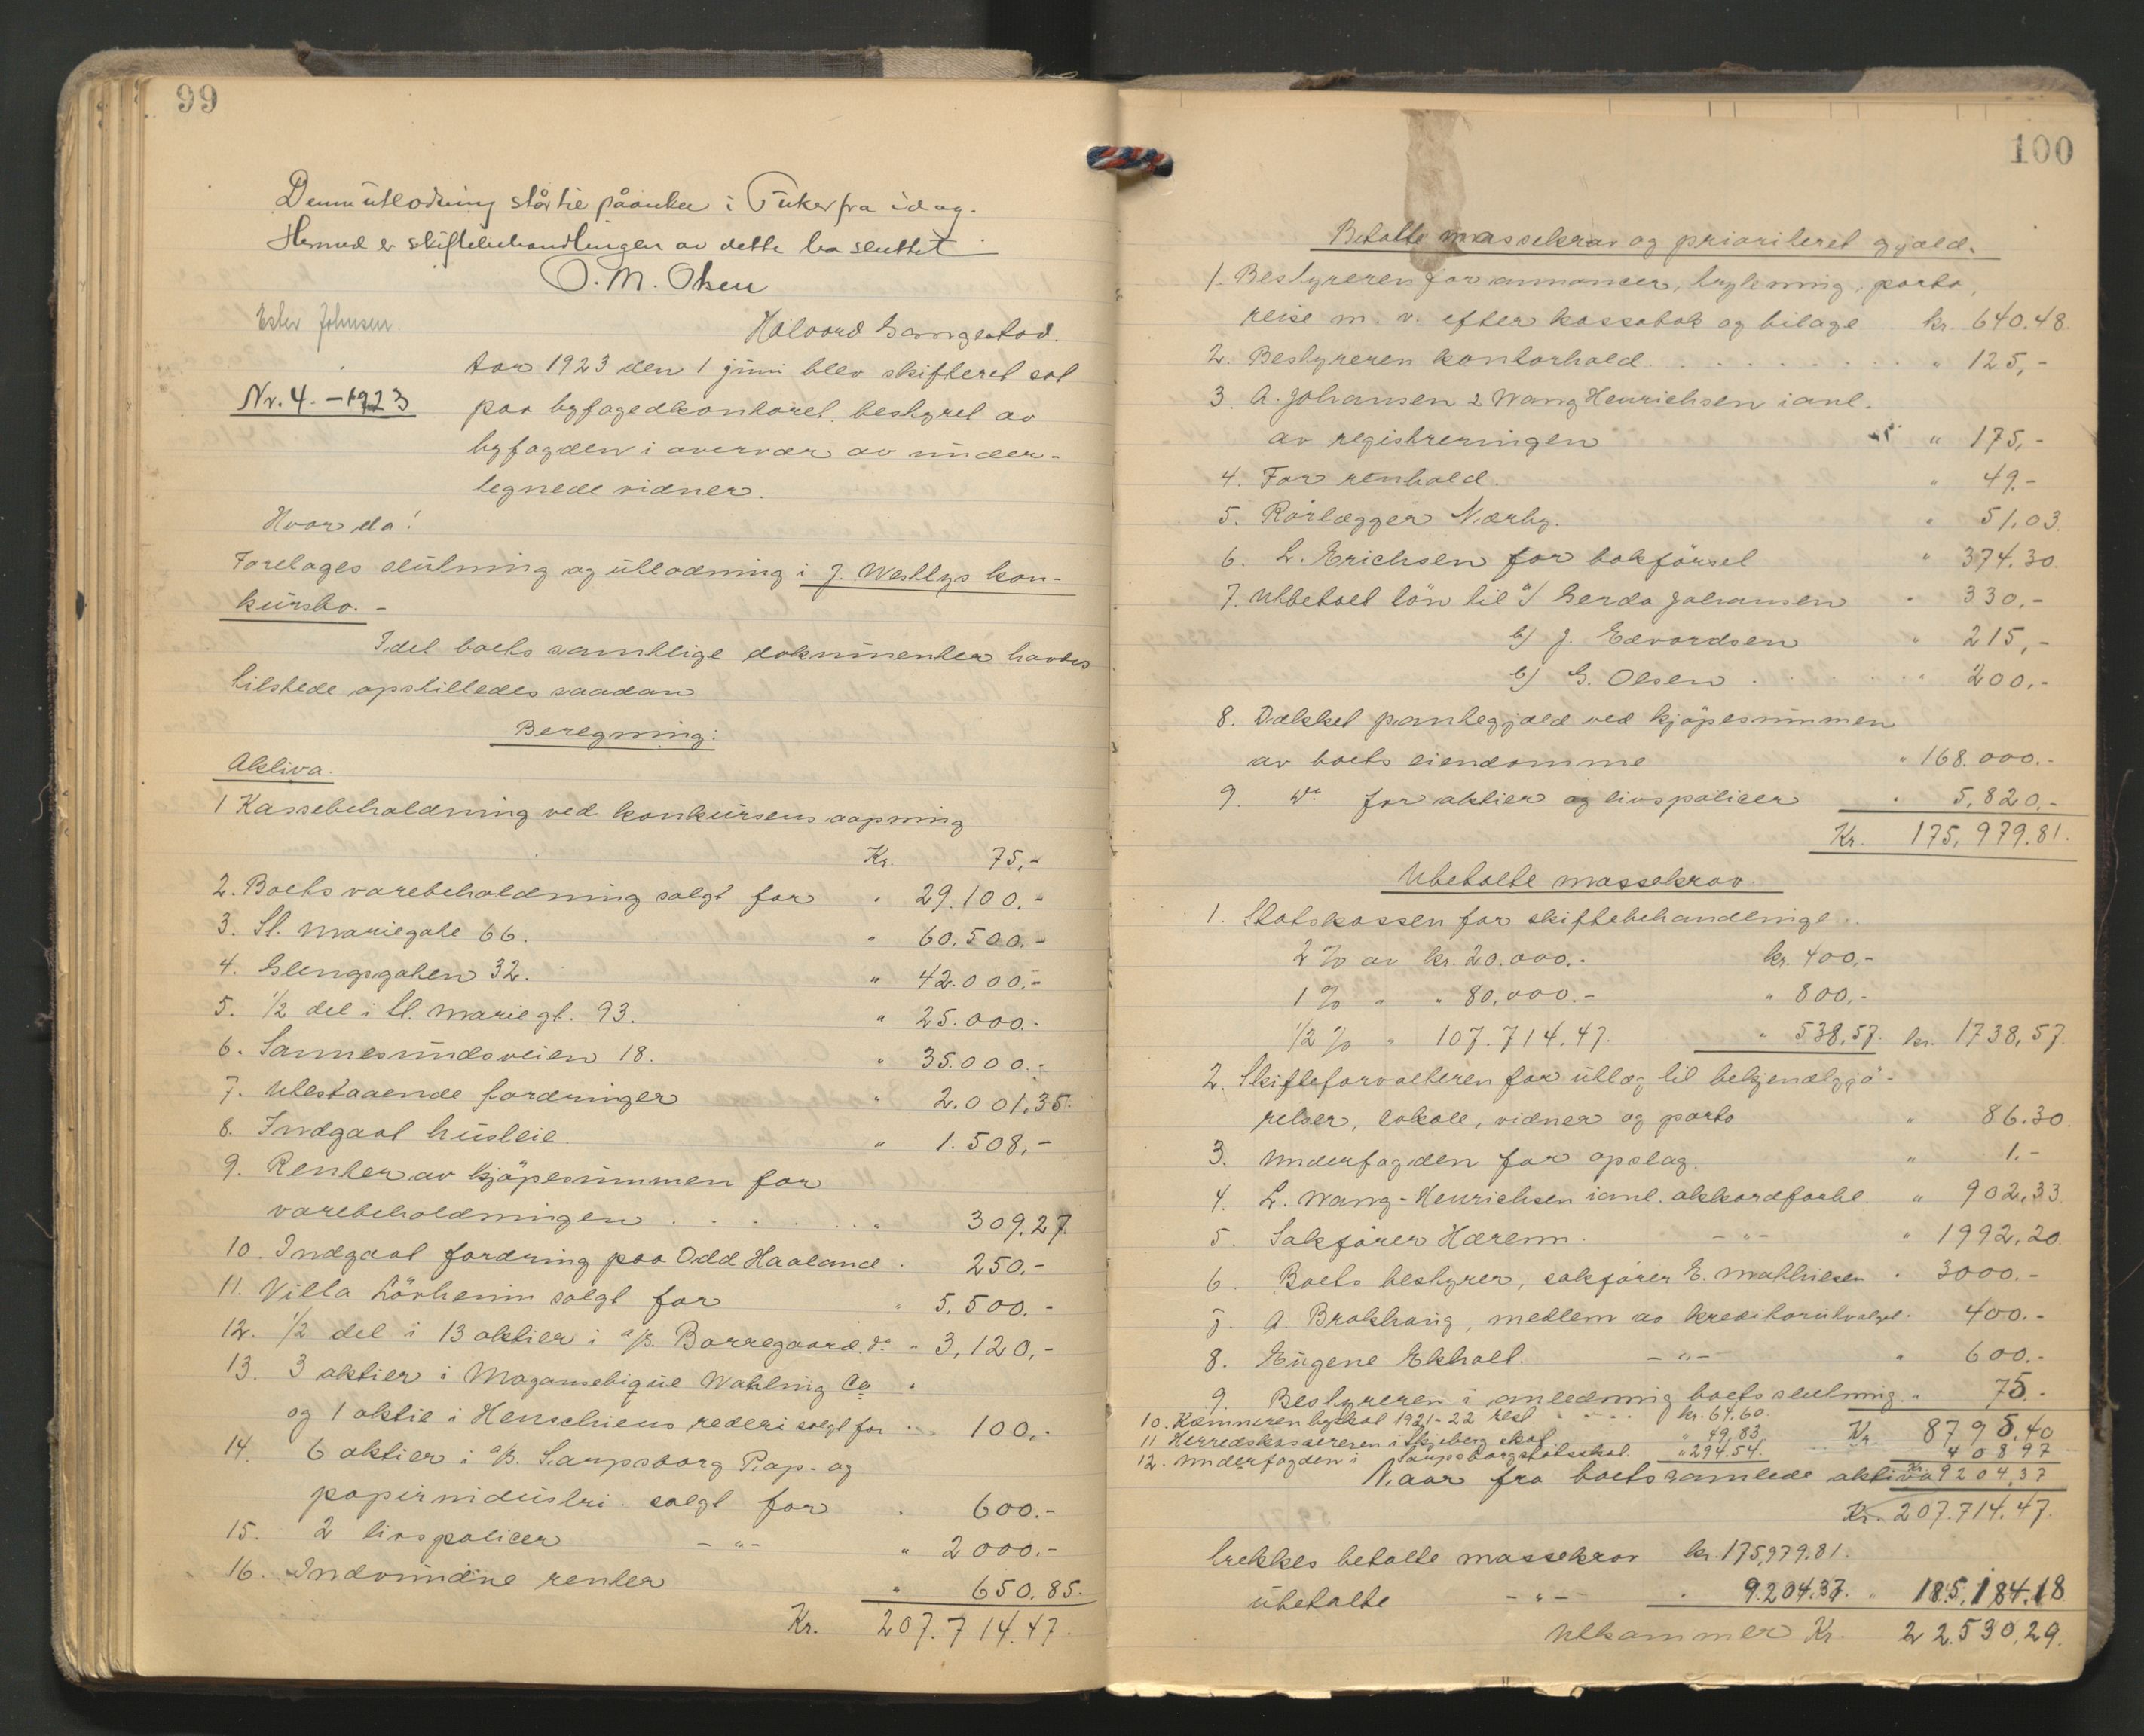 99
Denne utlodning står til påanke i 6 uker fra idag.
Hermed er skiftebehandlingen av dette bo sluttet
O. M. Olsen
Ester Johnsen.
Halvord Gangestad.
Aar 1923 den 1 juni blev skifteret sat
Nr. 4. – 1923
paa byfogedkontoret bestyret av
byfogden i overvær av under-
tegnede vidner.
Hvor da!
Foretoges slutning og utlodning i J. Westlys kon-
kursbo. -
Idet boets samtlige dokumenter havdes
tilstede opstilledes saadan
Beregning:
Aktiva.
1 Kassebeholdning ved konkursens aapning
Kr. 75,-
2. Boets varebeholdning solgt for " 29.100.-
3. St. Mariegate 66. " 60.500.-
4. Glengsgaten 32. " 42.000.-
5. 1/2 del i St. Mariegt. 93. " 25.000.-
6. Sannesundsveien 18. " 35.000.-
7. Utestaaende fordringer " 2.001,35.
8. Indgaat husleie. " 1.508,-
9. Renter av kjöpesummen for
varebeholdningen . . . . . . " 309,27.
10. Indgaat fordring paa Odd Haaland . 250.-
11. Villa Lövheim solgt for " 5.500.-
12. 1/2 del i 13 aktier i a/s. Borregaard. do " 3,120,-
13. 3 aktier i Mozambique Wahling Co "
og 1 aktie i Henschiens rederi solgt for . . 100,-
14. 6 aktier i a/s. Sarpsborg Pap- og
papirindustri solgt for . 600.-
15. 2 livspolicer - " - " 2000.-
16. Indvundne renter " 650,85.
Kr. 207.714.47.
100
Betalte massekrav og prioritert gjæld.
1. Bestyreren for annoncer, brylening, porto,
reise m. v. efter kassabok og bilage kr. 640.48.
2. Bestyreren kontorhold . . . . . . . " 125,-
3. A. Johansen & Wang Henrichsen i anl.
av registreringen " 175,-
4. For renhold. " 49.-
5. Rörlægger Nærby. " 51,03.
6. L. Erichsen for bokförsel " 374.30.
7. Utbetalt lön til a/ Gerda Johansen " 330,-
b/ J. Edvardsen " 215,-
b/ G. Olsen . . . . . " 200,-
8. Dækket pantegjæld ved kjöpesummen
av boets eiendomme " 168.000.-
9. do for aktier og livspolicer " 5,820,-
Kr. 175,979.81.
Ubetalte massekrav.
1. Statskassen for skiftebehandlinge..
2 % av kr. 20.000,- kr. 400,-
1 % " " 80,000.- " 800,-
1/2 % " 107.714.47. " 538,57. kr. 1738,57.
2. Skifteforvalteren for utlæg til bekjendtgjö-
relser, lokale, vidner og porto " 86.30.
3. Underfogden for opslag. " 1.-
4. L. Wang-Henrichsen i anl. akkordforhl. " 902,33
5. Sakförer Hærem. - " - " 1992,20.
6. Boets bestyrer, sakförer E. Mathiesen " 3000.-
7. A. Brakhaug, medlem av kreditorutvalget. 400.-
8. Eugene Ekholt. - " - " 600.-
9. Bestyreren i anledning boets slutning. " 75.-
10. Kæmneren byskat 1921-22 rest. " - . . . kr. 64,60. Kr. 8795.40
11 Herredskassereren i Skjeberg skat " 49,83
12. Underfogden i Sarpsborg statsskat. " 294.54. 408 97
Naar fra boets samlede aktiva Kr. 9204,37
Kr. 207.714.47.
trekkes betalte massekrav kr. 175,979.81.
ubetalte - " - " 9.204.37. " 185,184.18
Utkommer Kr. 22.530,29.